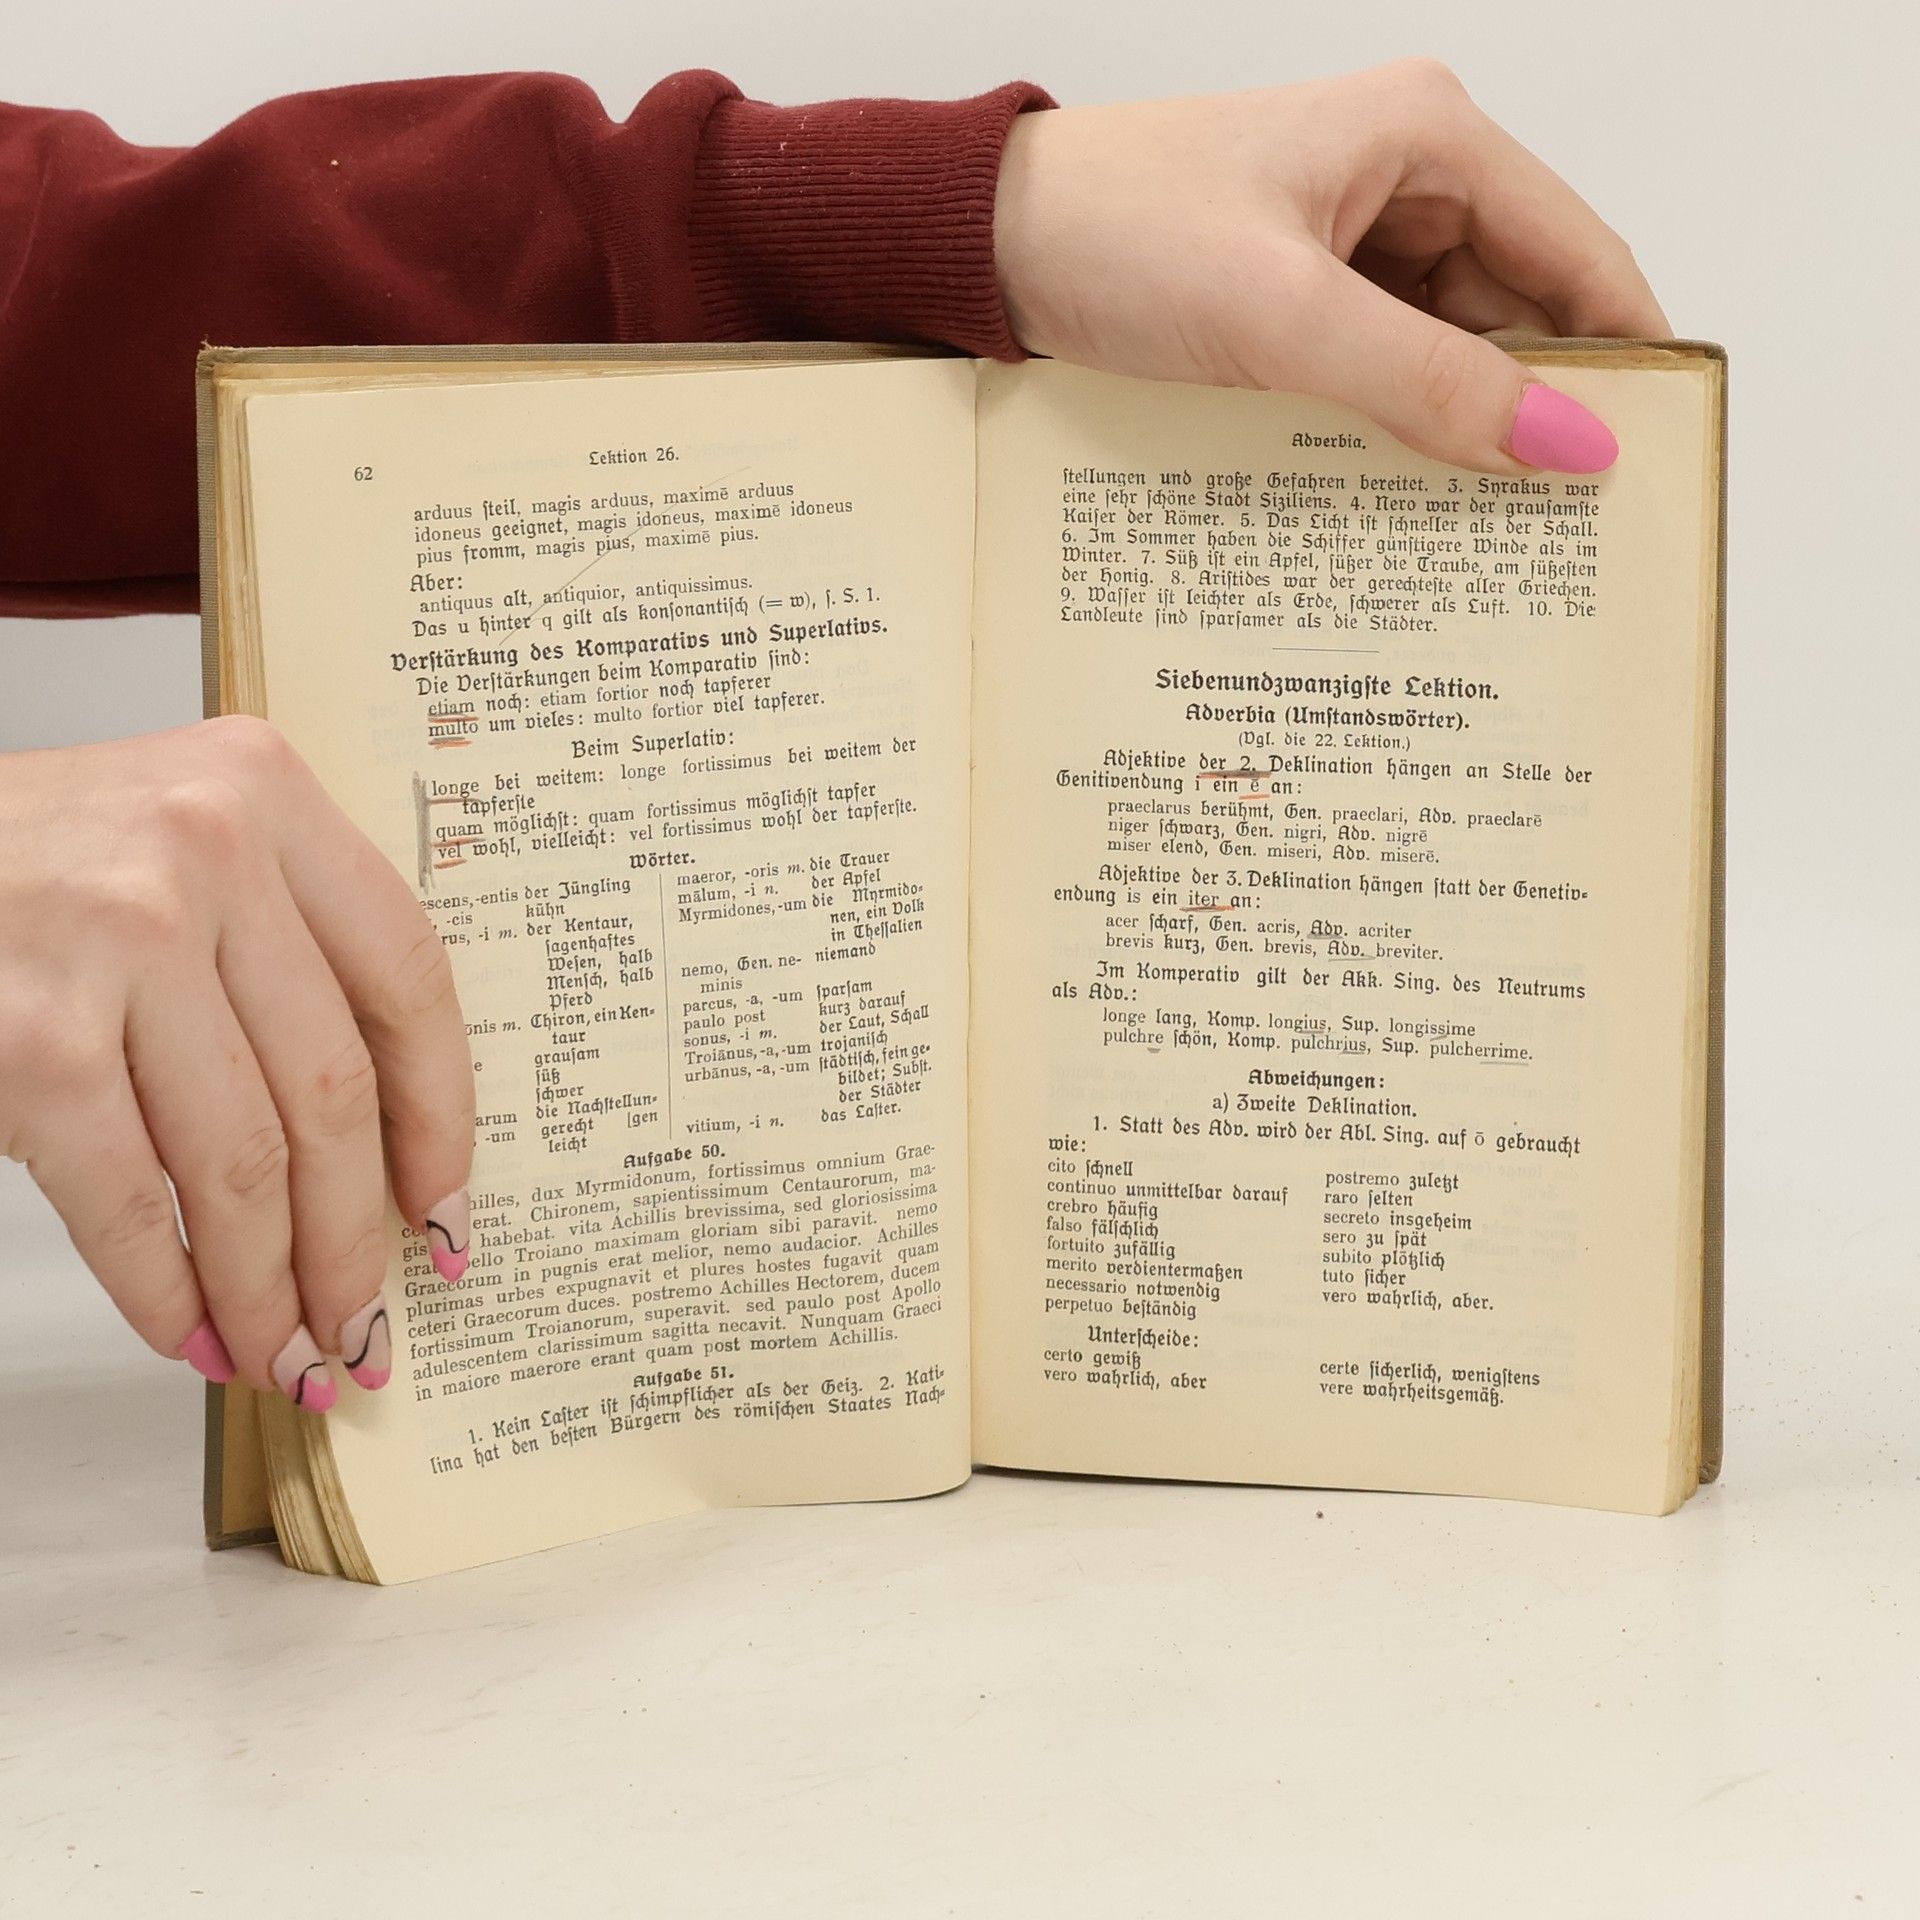 62
Lektion 26.
arduus ſteil, magis arduus, maximē arduus
idoneus geeignet, magis idoneus, maximē idoneus
pius fromm, magis pius, maximē pius.
Aber:
antiquus alt, antiquior, antiquissimus.
Das u hinter q gilt als konſonantiſch (= w), ſ. S. 1.
Verſtärkung des Komparativs und Superlativs.
Die Verſtärkungen beim Komparativ ſind:
etiam noch: etiam fortior noch tapferer
multo um vieles: multo fortior viel tapferer.
Beim Superlativ:
longe bei weitem: longe fortissimus bei weitem der
tapferſte
quam möglichſt: quam fortissimus möglichſt tapfer
vel wohl, vielleicht: vel fortissimus wohl der tapferſte.
Wörter.
escens,-entis der Jüngling
-cis kühn
rus, -i m. der Kentaur,
ſagenhaftes
Weſen, halb
Menſch, halb
Pferd
ōnis m. Chiron, ein Ken-
taur
e grauſam
ſüß
ſchwer
arum die Nachſtellun-
-um gerecht [gen
leicht
maeror, -oris m. die Trauer
mālum, -i n. der Apfel
Myrmidones,-um die Myrmido-
nen, ein Volk
in Theſſalien
nemo, Gen. ne- niemand
minis
parcus, -a, -um ſparſam
paulo post kurz darauf
sonus, -i m. der Laut, Schall
Troiānus,-a,-um trojaniſch
urbānus, -a, -um ſtädtiſch, fein ge-
bildet; Subſt.
der Städter
vitium, -i n. das Laſter.
Aufgabe 50.
hilles, dux Myrmidonum, fortissimus omnium Grae-
erat. Chironem, sapientissimum Centaurorum, ma-
gis habebat. vita Achillis brevissima, sed gloriosissima
erat bello Troiano maximam gloriam sibi paravit. nemo
Graecorum in pugnis erat melior, nemo audacior. Achilles
plurimas urbes expugnavit et plures hostes fugavit quam
ceteri Graecorum duces. postremo Achilles Hectorem, ducem
fortissimum Troianorum, superavit. sed paulo post Apollo
adulescentem clarissimum sagitta necavit. Nunquam Graeci
in maiore maerore erant quam post mortem Achillis.
Aufgabe 51.
1. Kein Laſter iſt ſchimpflicher als der Geiz. 2. Kati-
lina hat den beſten Bürgern des römiſchen Staates Nach-
Adverbia.
ſtellungen und große Gefahren bereitet. 3. Syrakus war
eine ſehr ſchöne Stadt Siziliens. 4. Nero war der grauſamſte
Kaiſer der Römer. 5. Das Licht iſt ſchneller als der Schall.
6. Im Sommer haben die Schiffer günſtigere Winde als im
Winter. 7. Süß iſt ein Apfel, ſüßer die Traube, am ſüßeſten
der Honig. 8. Ariſtides war der gerechteſte aller Griechen.
9. Waſſer iſt leichter als Erde, ſchwerer als Luft. 10. Die
Landleute ſind ſparſamer als die Städter.
Siebenundzwanzigſte Lektion.
Adverbia (Umſtandswörter).
(Vgl. die 22. Lektion.)
Adjektive der 2. Deklination hängen an Stelle der
Genitivendung i ein ē an:
praeclarus berühmt, Gen. praeclari, Adv. praeclarē
niger ſchwarz, Gen. nigri, Adv. nigrē
miser elend, Gen. miseri, Adv. miserē.
Adjektive der 3. Deklination hängen ſtatt der Genetiv-
endung is ein iter an:
acer ſcharf, Gen. acris, Adv. acriter
brevis kurz, Gen. brevis, Adv. breviter.
Im Komperativ gilt der Akk. Sing. des Neutrums
als Adv.:
longe lang, Komp. longius, Sup. longissime
pulchre ſchön, Komp. pulchrius, Sup. pulcherrime.
Abweichungen:
a) Zweite Deklination.
1. Statt des Adv. wird der Abl. Sing. auf ō gebraucht
wie:
cito ſchnell
continuo unmittelbar darauf
crebro häufig
falso fälſchlich
fortuito zufällig
merito verdientermaßen
necessario notwendig
perpetuo beſtändig
postremo zuletzt
raro ſelten
secreto insgeheim
sero zu ſpät
subito plötzlich
tuto ſicher
vero wahrlich, aber.
Unterſcheide:
certo gewiß
vero wahrlich, aber
certe ſicherlich, wenigſtens
vere wahrheitsgemäß.